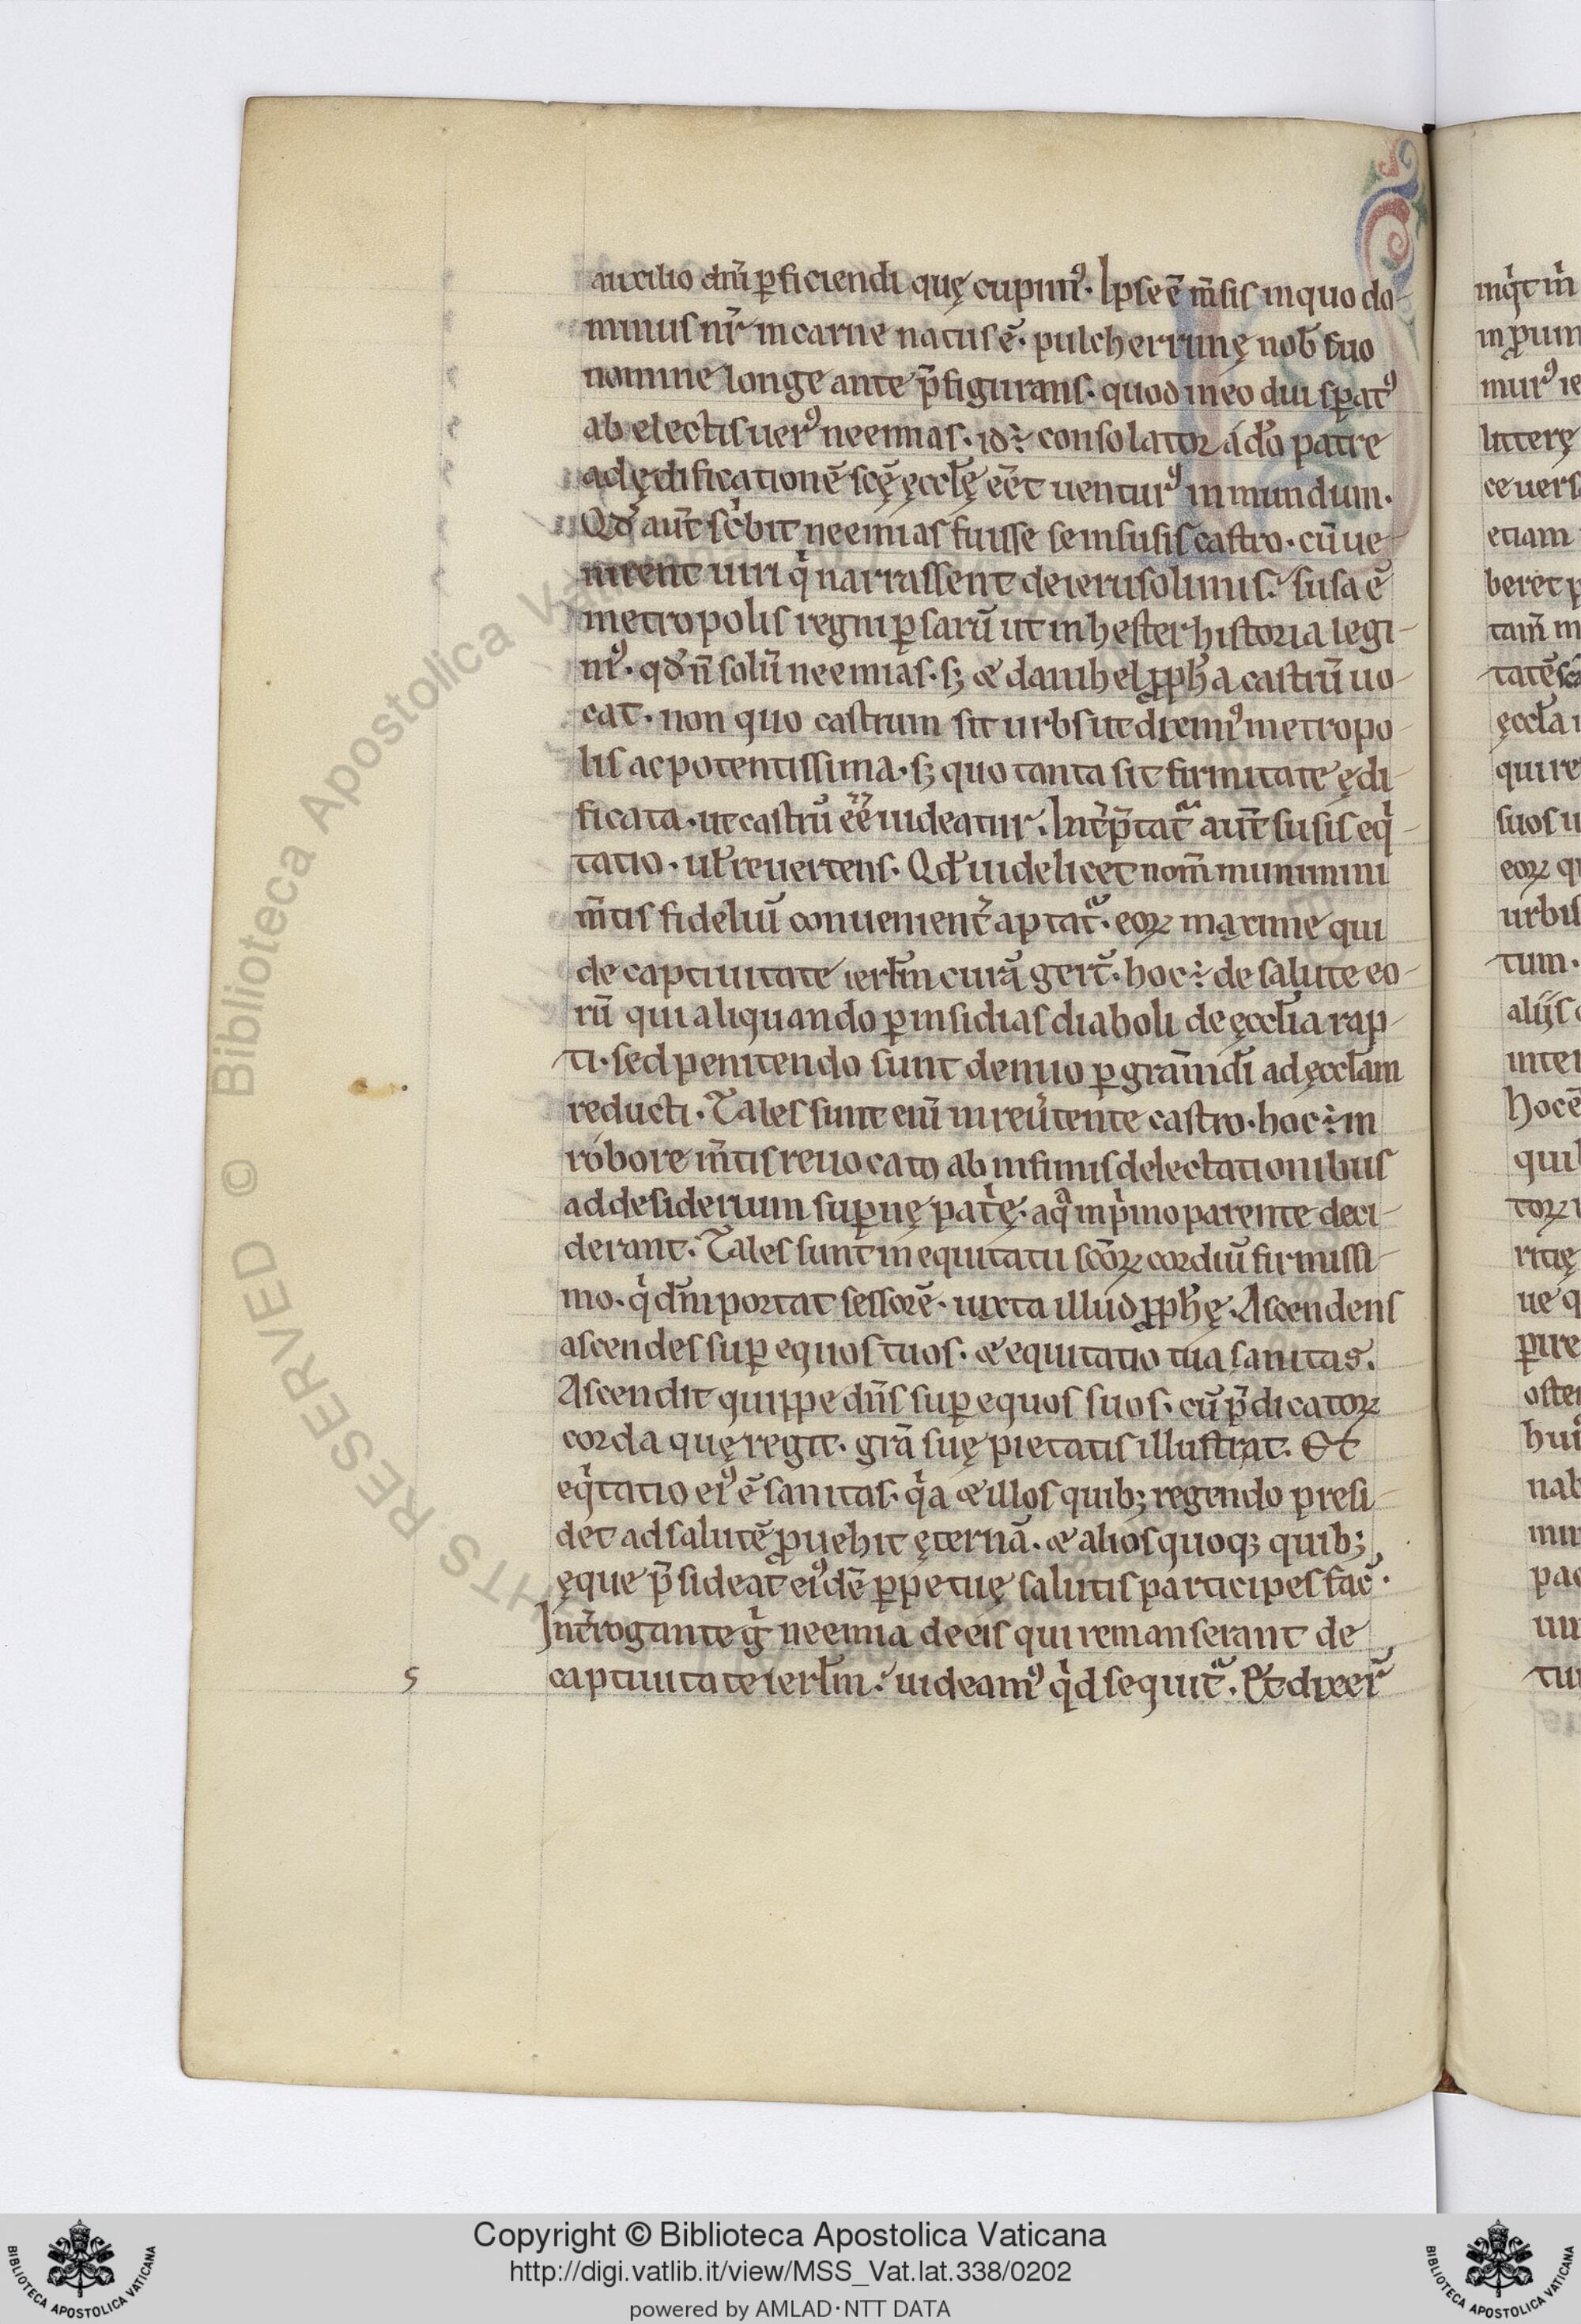 auxilio dn̄i ꝑficiendi quę cupim᷒. Ipse ē m̄sis in quo do-
minus nr̄ in carne natus ē. pulcherrimę nob̄ suo
nomine longe ante p̄figurans. quod in eo diu sꝑat᷒
ab electis uer᷒ neemias. id ÷ consolator a dō patre
ad ędificationē scę̄ ęccl̄ę eēt uentur᷒ in mundum.
Qd̄ aut̄ scͥbit neemias fuisse se in susis castro. cū ue-
nirent uiri qͥ narrassent de ierusolimis. susa ē
metropolis regni ꝑsarū ut in hester historia legi-
m᷒. qd̄ n̄ solū neemias. sꝫ & danihel ꝓph̄a castrū uo-
cat. non quo castrum sit urbs ut dixim᷒ metropo-
lis ac potentissima. sꝫ quo tanta sit firmitate ędi-
ficata. ut castrū ēē uideatur. Int̄p̄tat᷑ aut̄ susis eqͥ-
tatio. ul̄ reuertens. Qd̄ uidelicet nom̄ munimini
m̄tis fideliū conuenient̄ aptat᷑. eoꝝ maxime qui
de captiuitate ierl̄m curā ger̄t. hoc ÷ de salute eo-
rū qui aliquando ꝑ insidias diaboli de ęccl̄ia rap-
ti. sed penitendo sunt denuo ꝑ gr̄am dī ad ęccl̄am
reducti. Tales sunt enī in reu̾tente castro. hoc ÷ in
robore m̄tis reuocato ab infimis delectationibus
ad desiderium suꝑnę patͥę. a qͣ in pͥmo parente deci-
derant. Tales sunt in equitatu scōꝝ cordiū firmissi-
mo. qͥ dn̄m portat sessorē. iuxta illud ꝓph̄ę. Ascendens
ascendes suꝑ equos tuos. & equitatio tua sanitas.
Ascendit quippe dn̄s suꝑ equos suos. cū p̄dicatoꝝ
corda quę regit. gr̄a suę pietatis illustrat. Et
eqͥtatio ei᷒ ē sanitas. qͥa & illos quibꝫ regendo presi-
det ad salutē ꝓuehit ęternā. & alios quoqꝫ quibꝫ
ęque p̄sideat ei᷒dē ꝑpetuę salutis participes fac̄.
Int̄rogante gͥ neemia de eis qui remanserant de
captiuitate ierl̄m. uideam᷒ qͥd sequit᷑. Et dixer᷑
s
mqͥt m̄
in pͥum
mur᷒ ie
litterę
ce uers
etiam
beret p
tam̄ m
tatē scā
ęccl̄a i
qui re
suos u
eoꝝ q
urbis
tum.
alijs
inter
hoc ē
quib
toꝝ
ritię
ue q
ꝑire
osten
hui᷒
nab
mur
pac
uir
tur
Copyright © Biblioteca Apostolica Vaticana
http://digi.vatlib.it/view/MSS_Vat.lat.338/0202
powered by AMLAD·NTT DATA
BIBLIOTECA APOSTOLICA VATICANA
BIBLIOTECA APOSTOLICA VATICANA